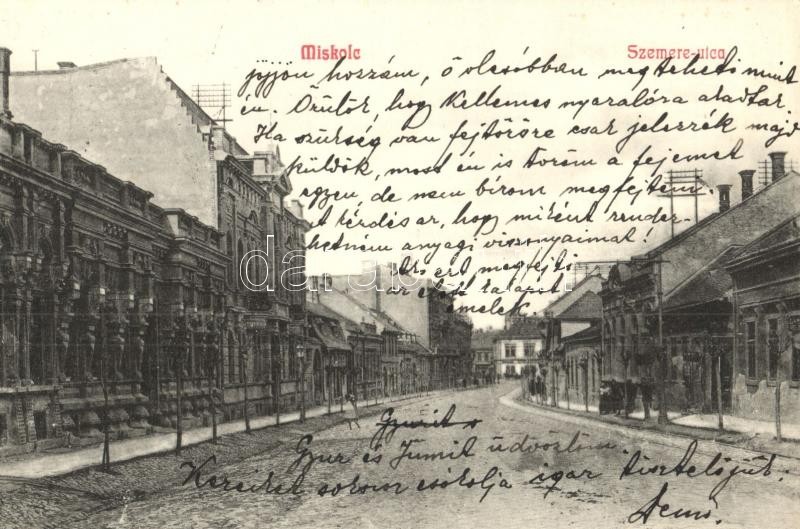 Miskolc
Szemere-utca
jöjjön hozzám, ő olcsóbban megteheti mint
én. Örülök, hogy kellemes nyaralóra akadtak
Ha szükség van fejtörőre csak jelezzék majd
küldök, most én is töröm a fejemet
egyen, de nem birom megfejteni
t kérdés az, hogy miként rendez-
hetném anyagi viszonyaimat!
ki ezt megfejti
az előtt kalapot
emelek.
darabanth
Gyurit s
Gyur és üdvözlöm.
Kezeiket sokszor csókolja igaz tisztelőjük.